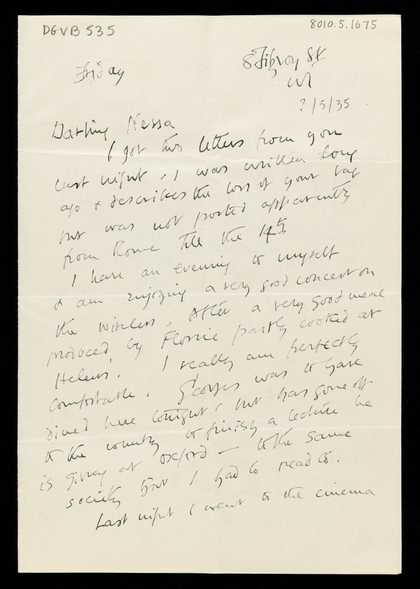 DGVB 535
8010.5.1675
Friday
8 Fitzroy St
W1
?/5/35
Darling Nessa
I got two letters from you
last night. 1 was written long
ago & describes the loss of your bag
but was not posted apparently
from Rome till the 4th
I have an evening to myself
& am enjoying a very good concert on
the wireless. After a very good meal
produced by Florrie partly cooked at
Helens! I really am perfectly
comfortable. Georges was to have
dined here tonight, but has gone off
to the country to finish a lecture he
is giving at Oxford — to the same
society that I had to read to.
Last night I went to the cinema